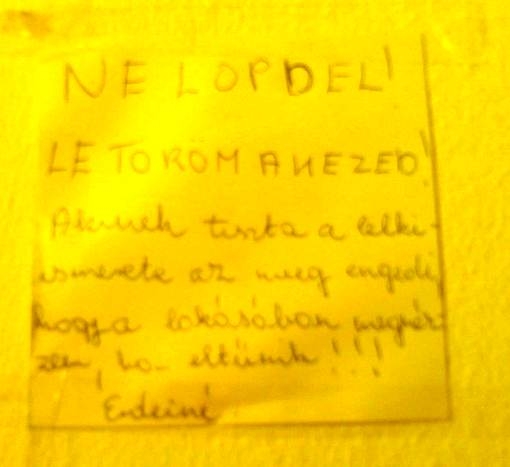 NE LOPD EL!
LETÖRÖM A KEZED!
Akinek tiszta a lelki-
ismerete az meg engedi,
hogy a lakásában megnéz-
zem, ha eltűnik!!!
Erdeiné